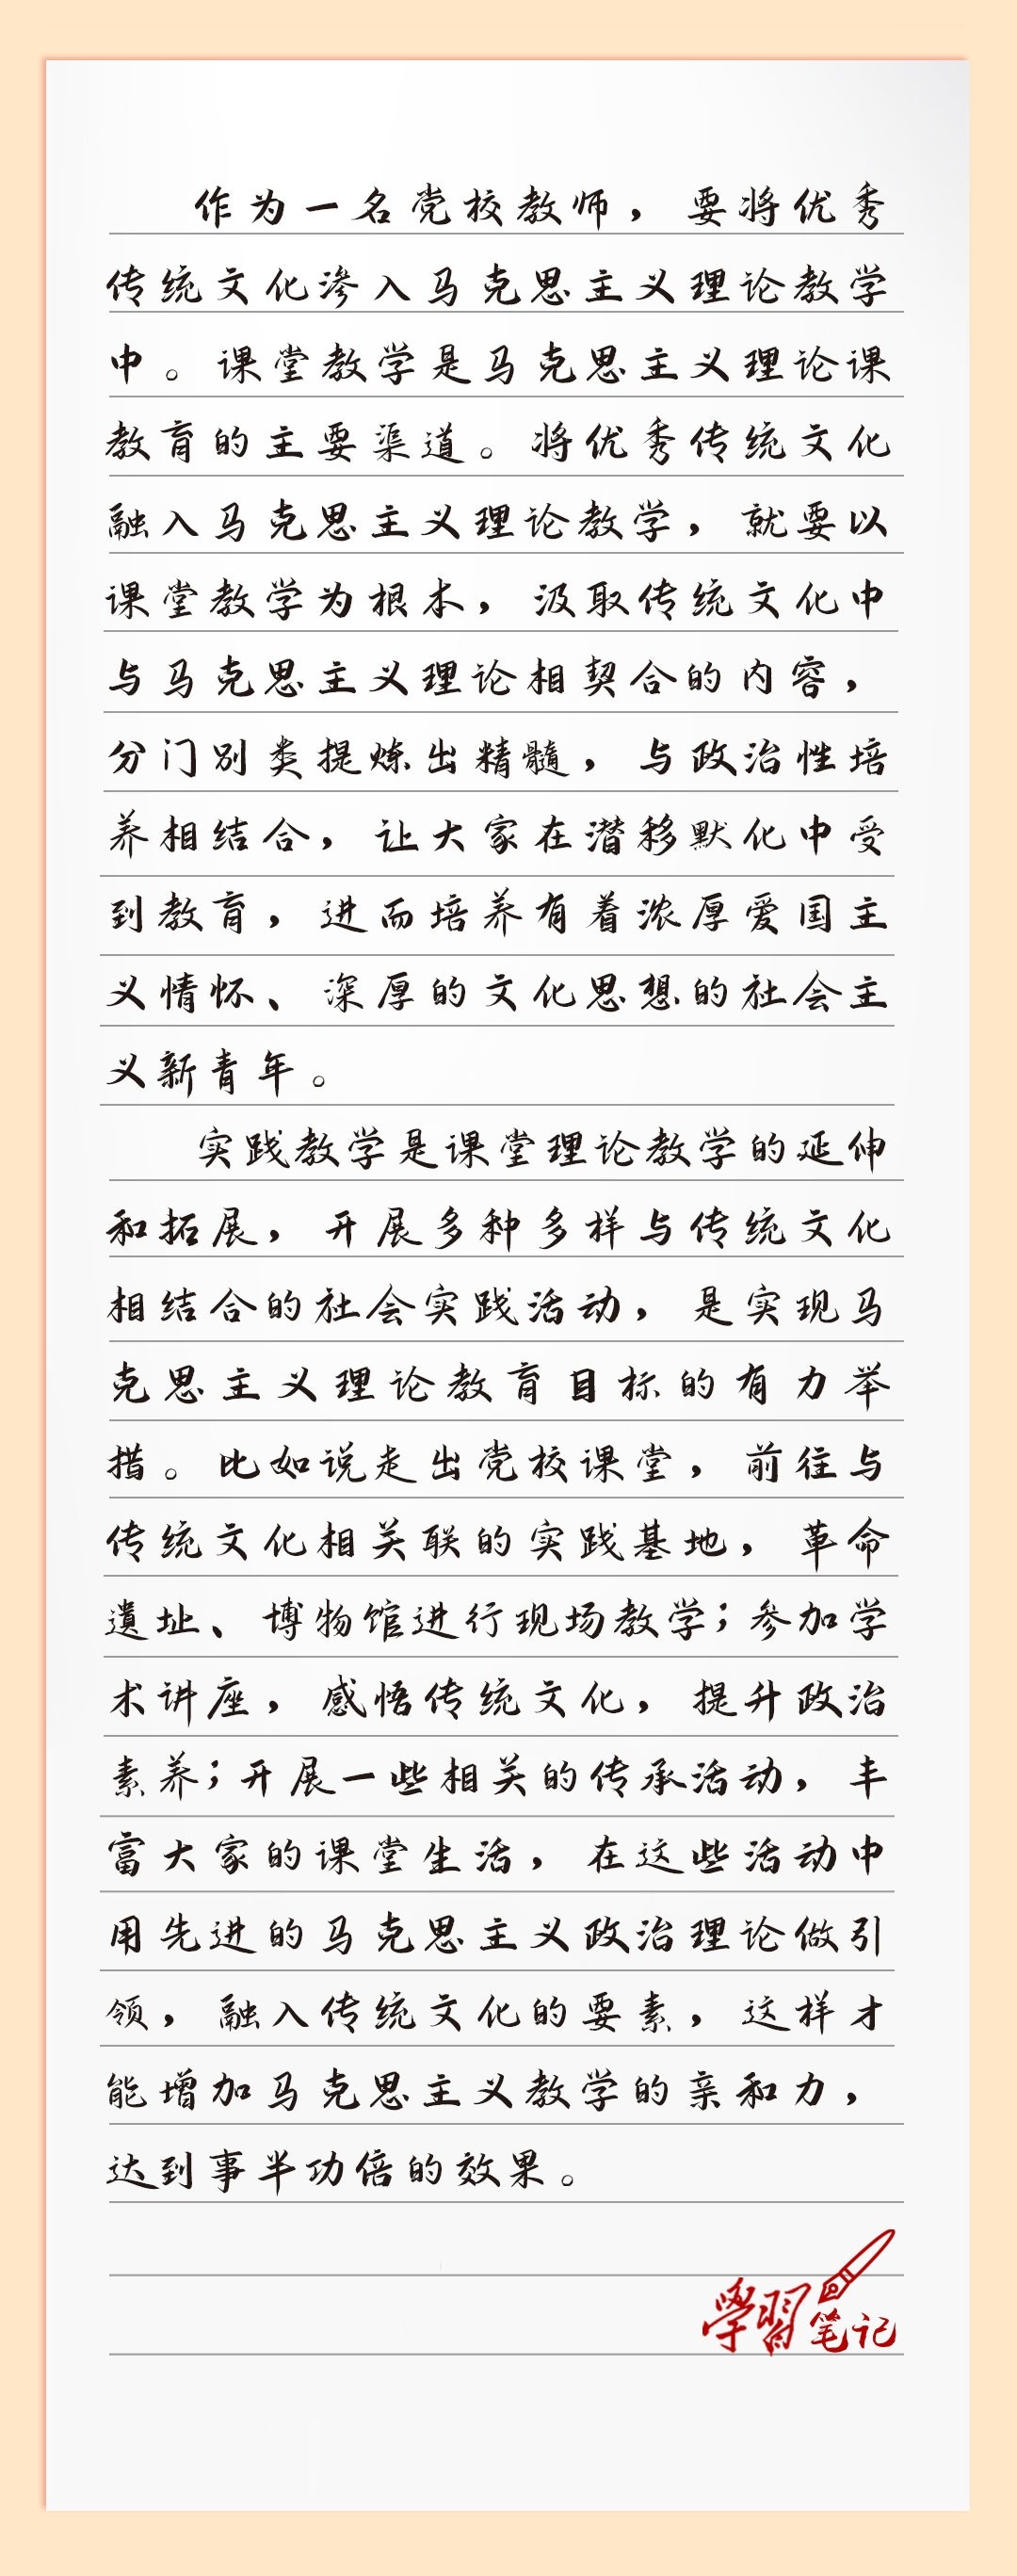 作为一名党校教师，要将优秀
传统文化渗入马克思主义理论教学
中。课堂教学是马克思主义理论课
教育的主要渠道。将优秀传统文化
融入马克思主义理论教学，就要以
课堂教学为根本，汲取传统文化中
与马克思主义理论相契合的内容，
分门别类提炼出精髓，与政治性培
养相结合，让大家在潜移默化中受
到教育，进而培养有着浓厚爱国主
义情怀、深厚的文化思想的社会主
义新青年。
实践教学是课堂理论教学的延伸
和拓展，开展多种多样与传统文化
相结合的社会实践活动，是实现马
克思主义理论教育目标的有力举
措。比如说走出党校课堂，前往与
传统文化相关联的实践基地，革命
遗址、博物馆进行现场教学；参加学
术讲座，感悟传统文化，提升政治
素养；开展一些相关的传承活动，丰
富大家的课堂生活，在这些活动中
用先进的马克思主义政治理论做引
领，融入传统文化的要素，这样才
能增加马克思主义教学的亲和力，
达到事半功倍的效果。
學習笔记